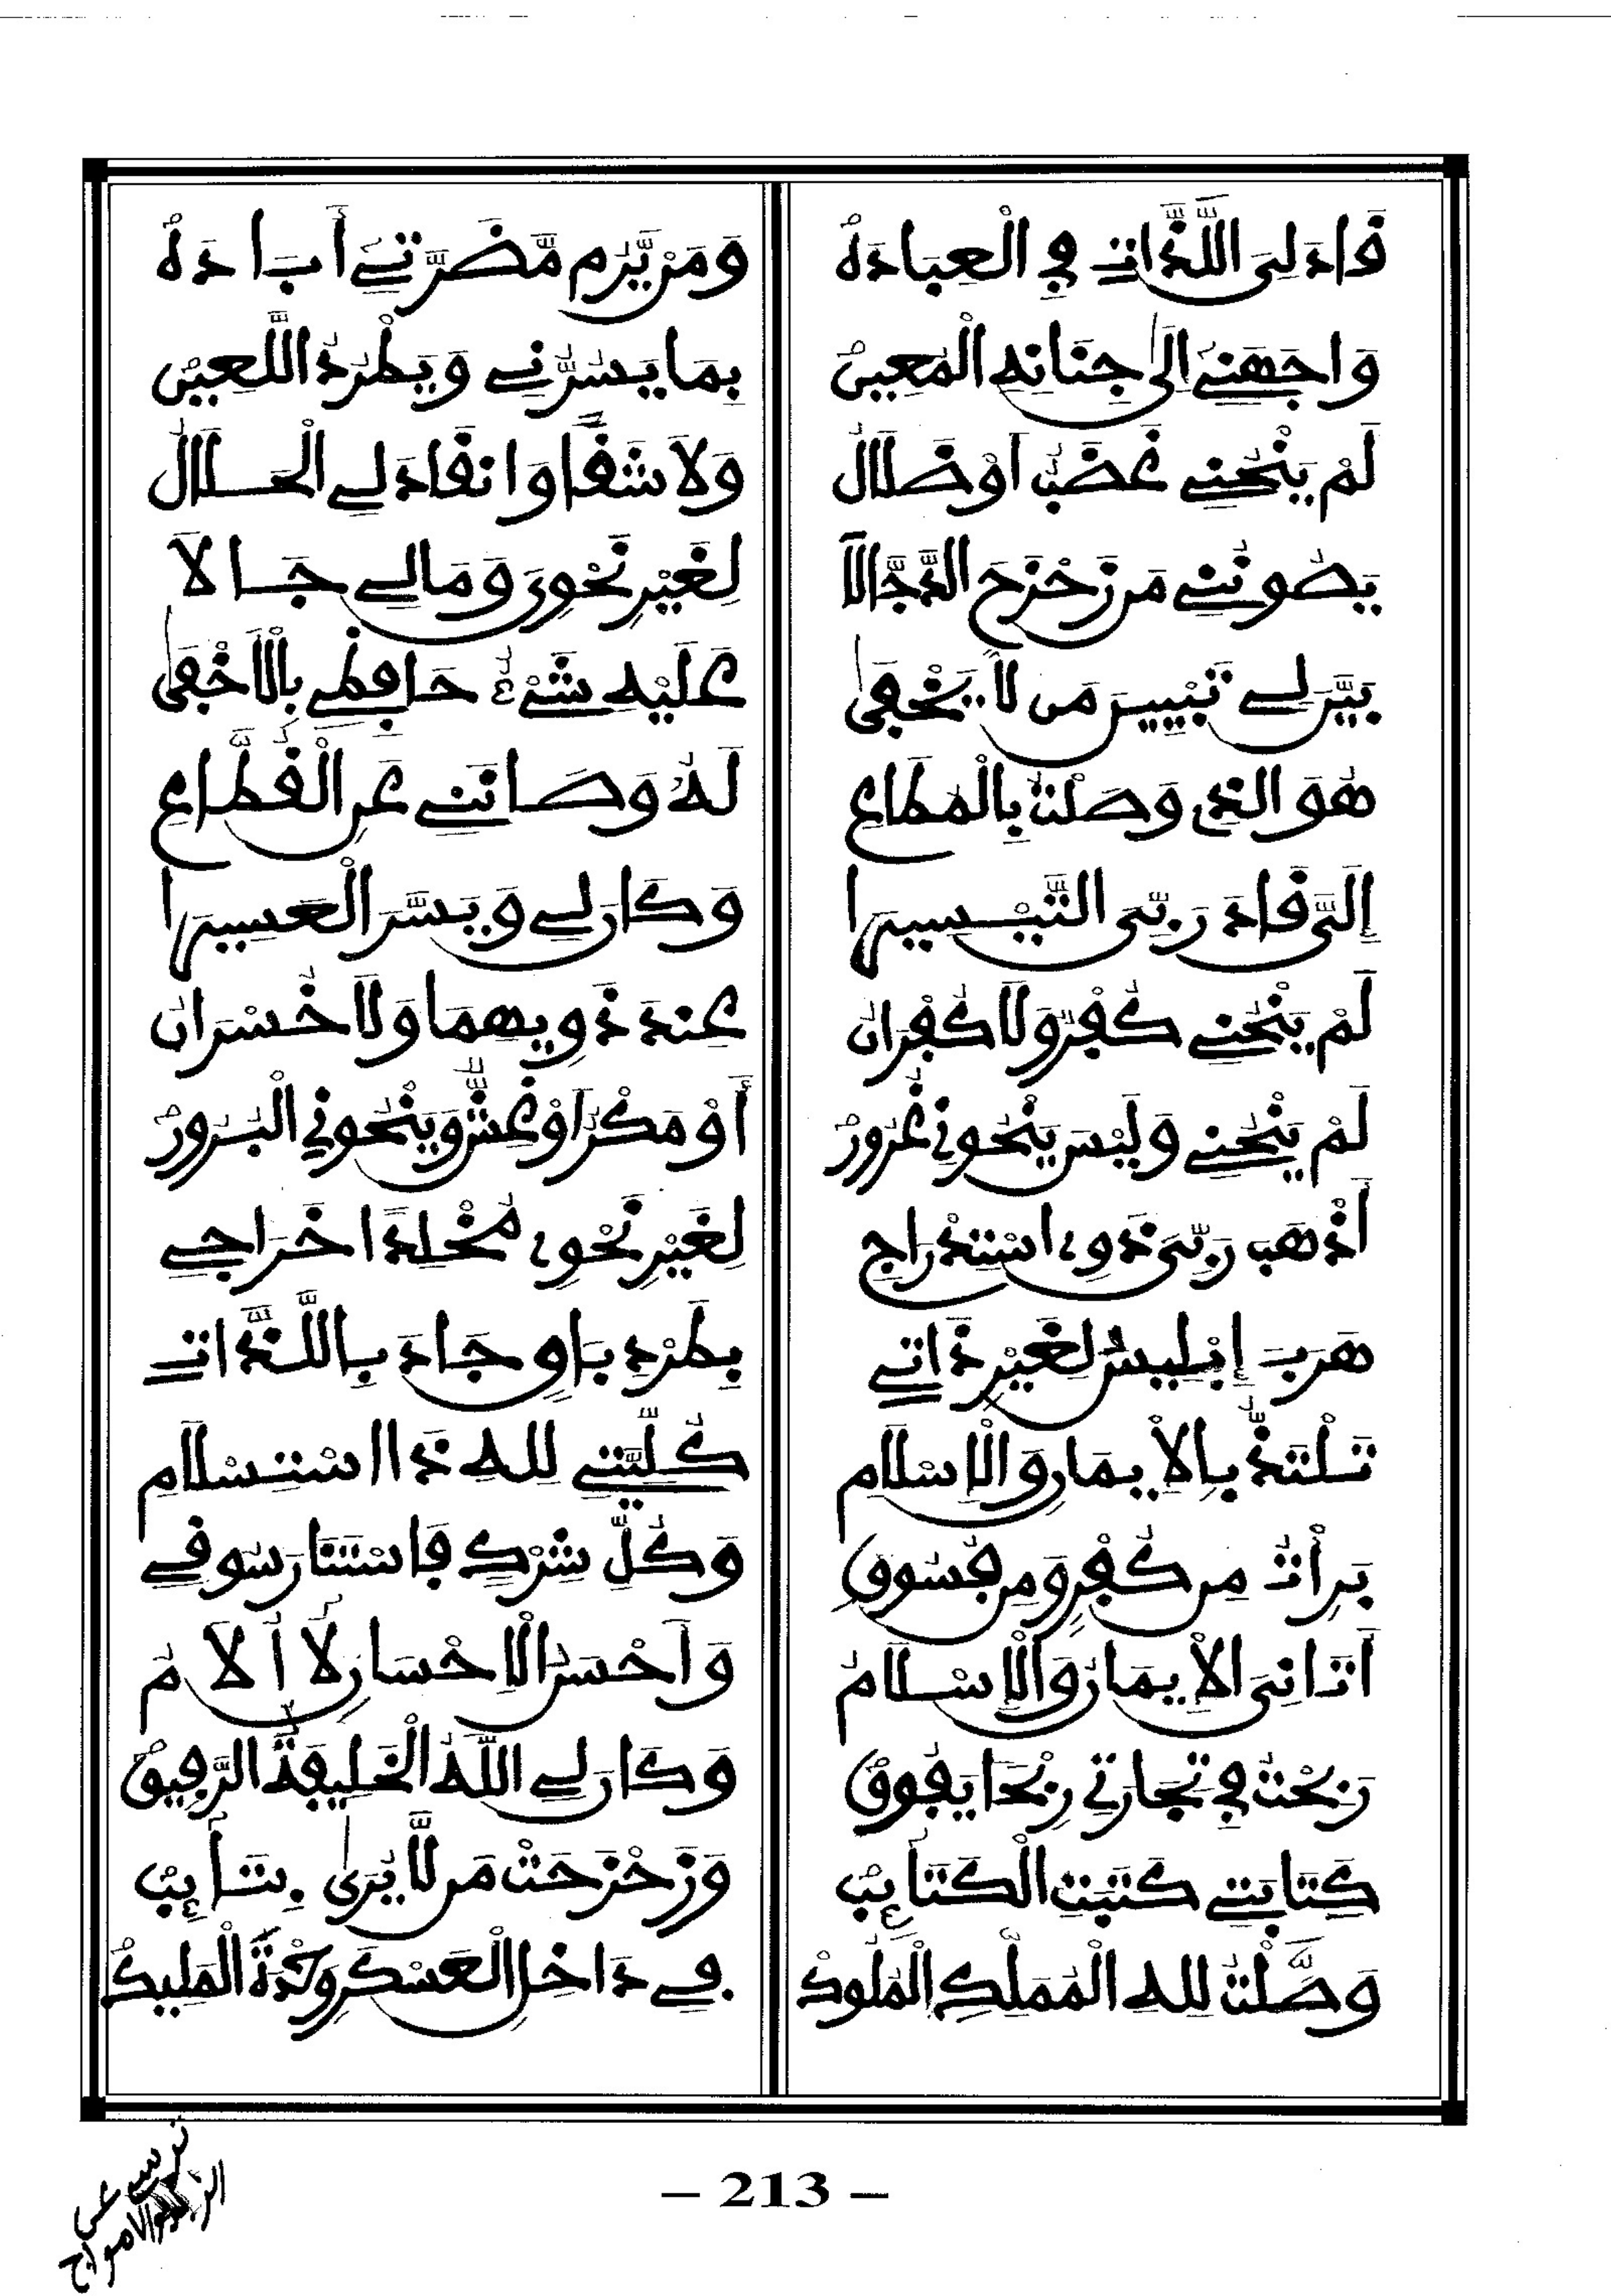 قَادَ لِىَ اللَّذَّاتِ فِي الْعِبَادَهْ وَمَنْ يَّرُمْ مَّضَرَّتِي أَبَادَهْ
وَاجَهَنِي إِلَى جِنَانِهِ الْمُعِينْ بِمَا يَسُرُّنِي وَيَطْرُدُ اللَّعِينْ
لَمْ يَنْحُنِي غَضَبٌ اَوْ ضَلَالُ وَلَا شَقًا وَانْقَادَ لِي الْحَلَالُ
يَصُونُنِي مَن زَحْزَحَ الدَّجَّالَا لِغَيْرِ نَحْوِىَ وَمَالِي جَالَا
بَيَّنَ لِي تَبْيِينَ مَن لَا يَخْفَى عَلَيْهِ شَيْءٌ حَافِظِي بِالْأَخْفَى
هُوَ الذِي وَصَلْتُ بِالْمُطَاعِ لَهُ وَصَانَنِي عَنِ الْقُطَّاعِ
إِلَىَّ قَادَ رَبِّىَ التَّيْسِيرَا وَكَانَ لِي وَيَسَّرَ الْعَسِيرَا
لَمْ يَنْحُنِي كُفْرٌ وَلَا كُفْرَانُ عِنْدَ ذَوِيهِمَا وَلَا خُسْرَانُ
لَمْ يَنْحُنِي وَلَيْسَ يَنْحُونِي غُرُورْ أَوْ مَكْرٌ اَوْ غِشٌّ وَيَنْحُونِي الْبُرُورْ
أَذْهَبَ رَبِّىَ ذَوِي اسْتِدْرَاجِ لِغَيْرِ نَحْوِي مُخْلِدًا خَرَاجِي
هَرَبَ إِبْلِيسُ لِغَيْرِ ذَاتِي بِطَرْدِ بَاقٍ جَادَ بِاللَّذَّاتِ
تَلْتَذُّ بِالْإِيمَانِ وَالْإِسْلَامِ كُلِّيَّتِي لِلهِ ذَا اسْتِسْلَامِ
بَرِأْتُ مِن كُفْرٍ وَمِن فُسُوقِ وَكُلِّ شِرْكٍ فَاسْتَنَارَ سُوقِي
أَتَانِىَ الْإِيمَانُ وَالْإِسْلَامُ وَأَحْسَنُ الْإِحْسَانِ لَا أُلَامُ
رَبِحْتُ فِي تِجَارَتِي رِبْحًا يَفُوقْ وَكَانَ لِي اللَّهُ الْخَلِيفَةُ الرَّفِيقْ
كِتَابَتِي كَتَبَتِ الْكَتَائِبْ وَزَحْزَحَتْ مَن لَّا يُرَى بِتَائِبْ
وَصَّلْتُ لِلهِ الْمُمَلِّكِ الْمُلُوكْ فِي دَاخِلِ الْعَسْكَرِ
– 213 –